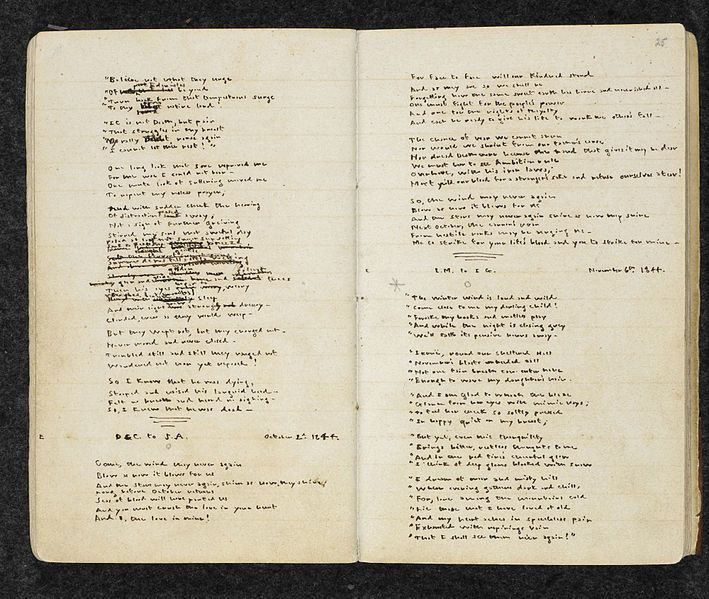 "Believe not what they urge
"Of Eden isles beyond
"Turn back from that tempestuous surge
"To thy native land!
"It is not Death, but pain
"That struggles in thy breast
"Nay rally, rouse again
"I cannot let thee rest!"
One long look that sore reproved me
For the woe I could not bear—
One mute look of suffering moved me
To repent my useless prayer;
And with sudden check the heaving
Of distraction passed away;
Not a sign of further grieving
Stirred my soul that awful day
sleep
And
dreary—
Clouded, even as they would weep—
But they wept not, but they changed not—
Never moved and never closed—
Troubled still and still they ranged not
Wandered not nor yet reposed!
So I knew that he was dying,
Stooped and raised his languid head—
Felt no breath and heard no sighing—
So, I knew that he was dead—
E D.G.C. to J.A. October 2d 1844.
Come, the wind may never again
Blow as now it blows for us
And the stars may never again, shine as now they shine,
Long before October returns
Seas of blood will have parted us
And you must crush the love in your heart
And I, the love in mine!
25
For face to face will our kindred stand
And as they are so we shall be
Forgetting how the same sweet earth has borne and nourished all—
One must fight for the people's power
And one for the rights of royalty
And each be ready to give his life to work the other's fall—
The chance of war we cannot shun
Nor would we shrink from our fathers' cause
Nor dread Death more because the hand that gives it may be dear
We must bear to see Ambition rule
Over Love, with his iron laws,
Must yield our blood for a stranger's sake and refuse ourselves a tear!
So, the wind may never again
Blow as now it blows for us
And the stars may never again shine as now they shine
Next October, the cannon's roar
From hostile ranks may be urging us—
Me to strike for your life's blood and you to strike for mine—
E E.W. to A.G. November 6th 1844.
"The winter wind is loud and wild
"Come close to me my darling child!
"Forsake thy books and mateless play
"And while the night is closing grey
"We'll talk its pensive hours away—
"Iernë, round our sheltered Hall
"November's blasts unheeded call
"Not one faint breath can enter here
"Enough to wave my daughter's hair—
"And I am glad to watch the blaze
"Glance from her eyes with mimic rays;
"To feel her cheek so softly pressed
"In happy quiet on my breast;
"But yet, even this tranquillity
"Brings bitter, restless thoughts to me
"And in the red fire's cheerful glow
"I think of deep glens blocked with snow
"I dream of moor and misty hill
"Where evening gathers dark and chill,
"For, lone among the mountains cold
"Lie those that I have loved of old
"And my heart aches in speechless pain
"Exhausted with repinings vain
"That I shall see them ne'er again!"